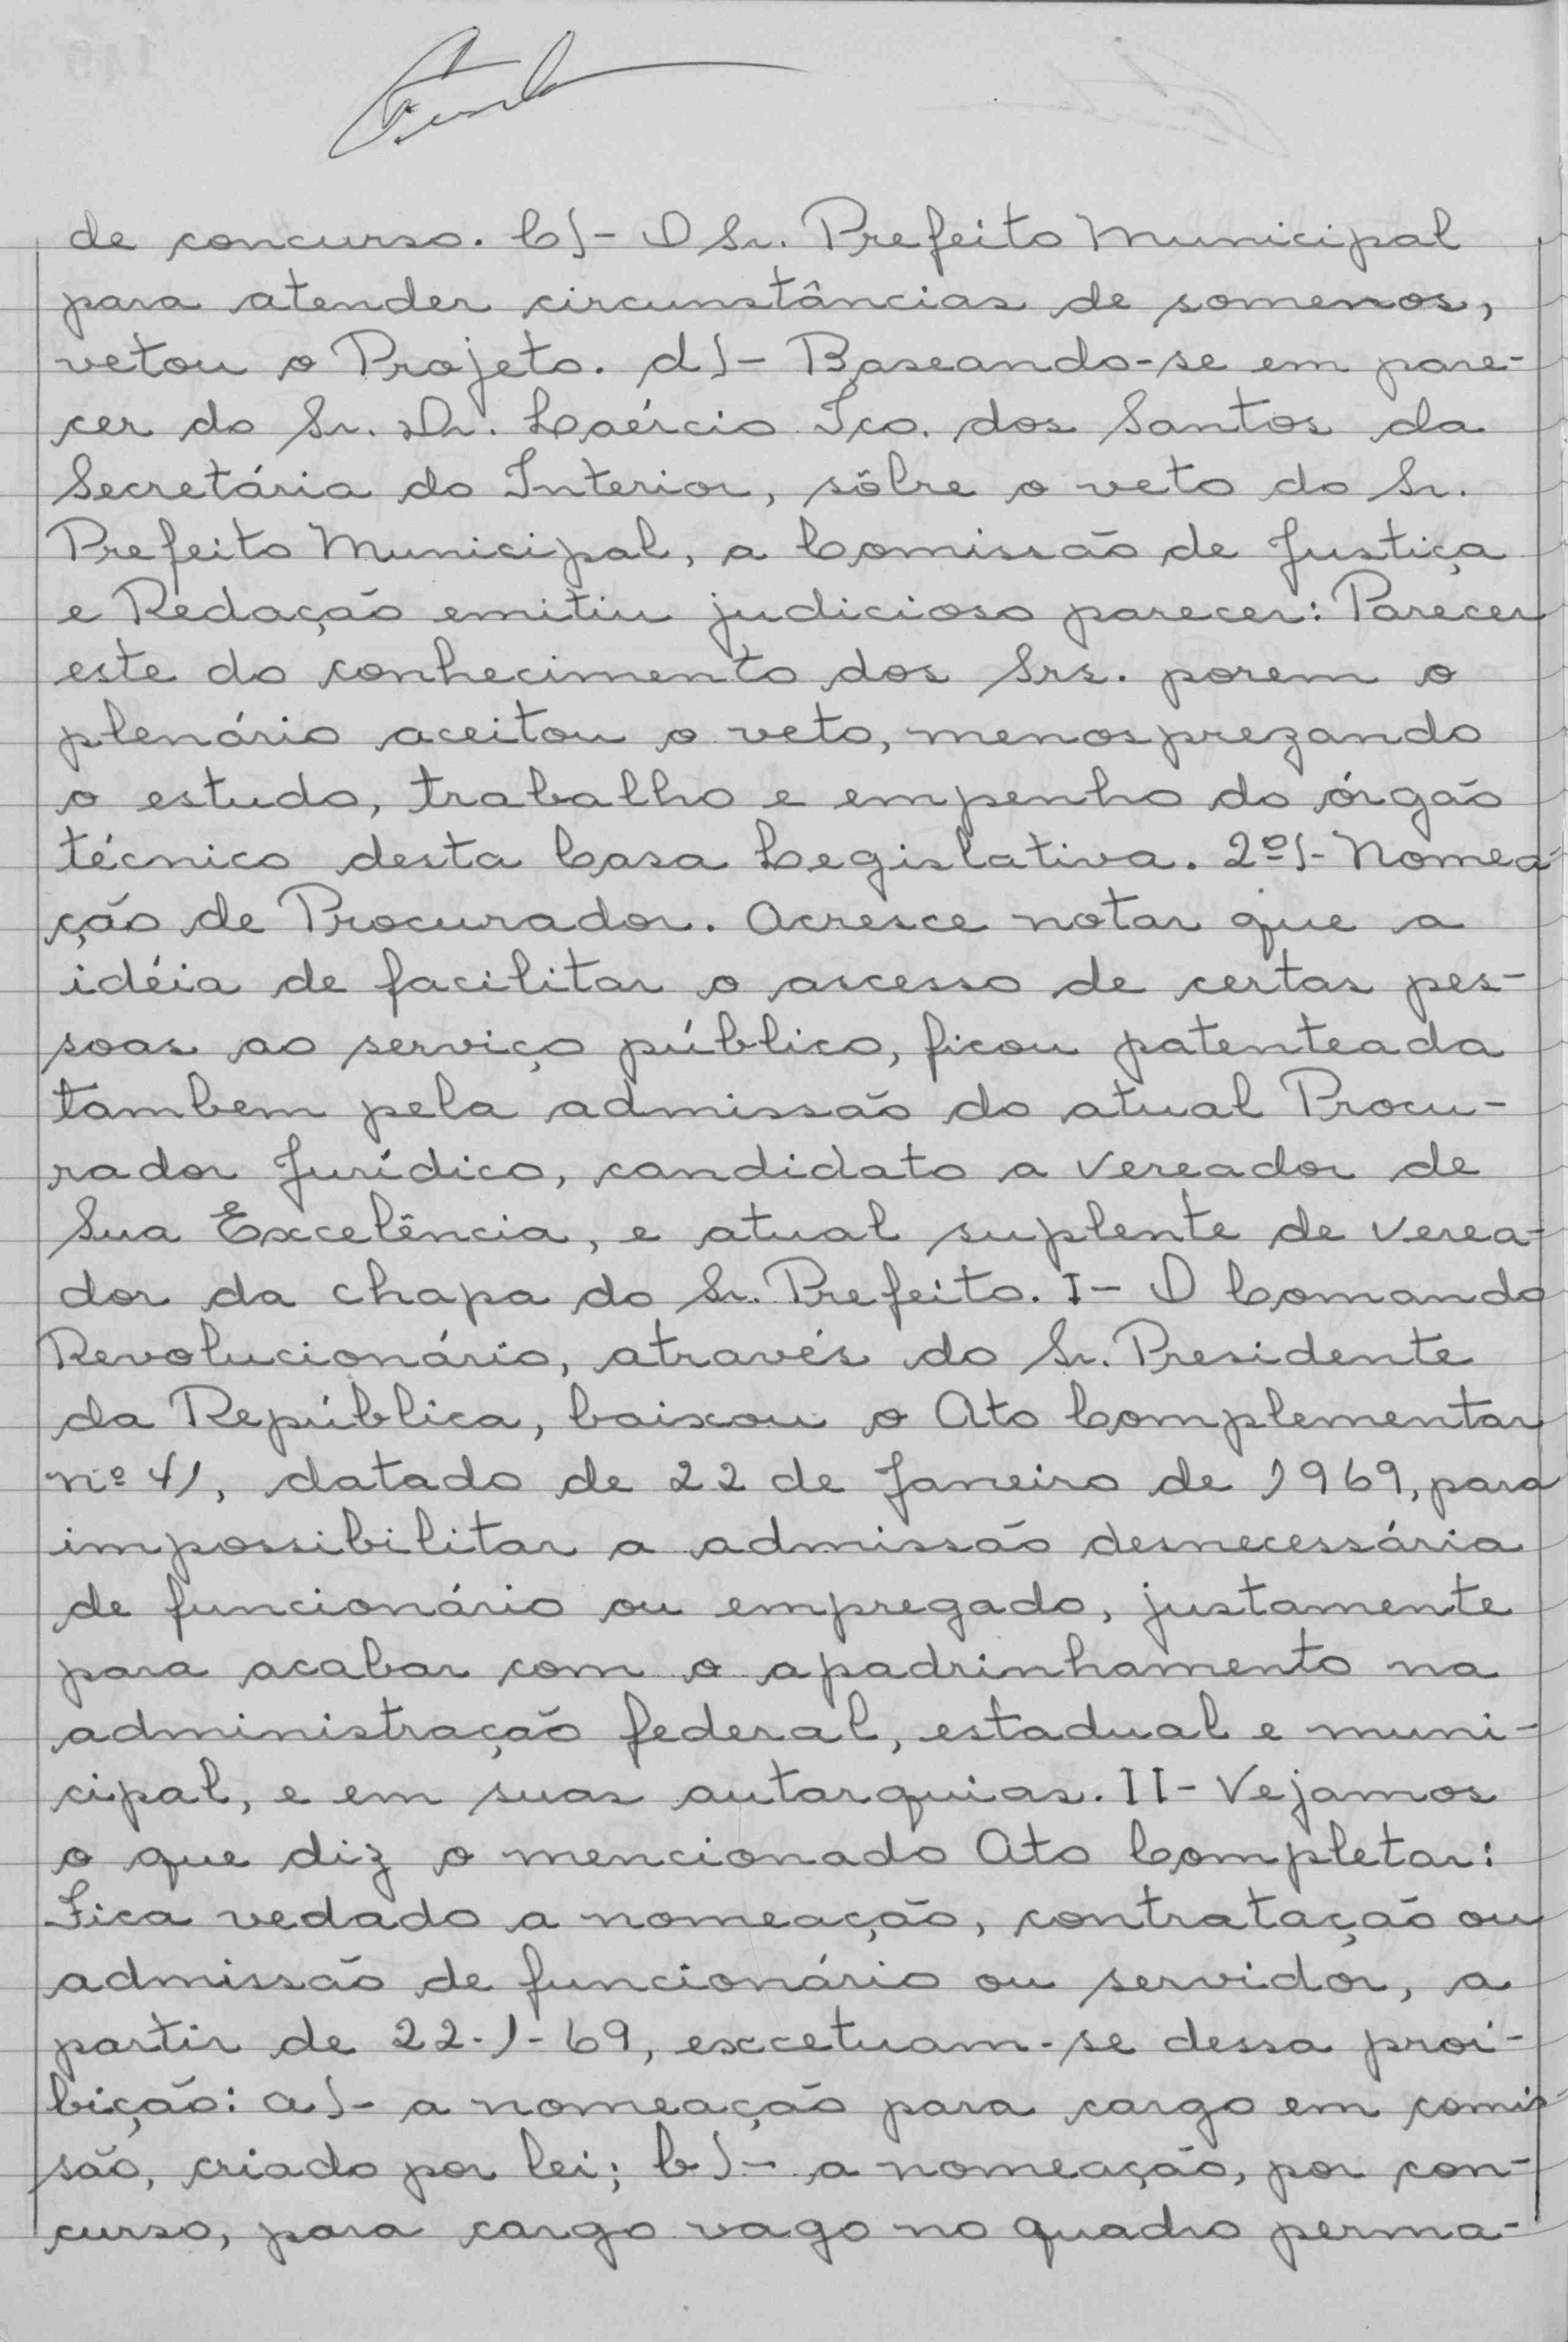 de concurso. C)- O Sr. Prefeito Municipal
para atender circunstâncias de somenos,
vetou o Projeto. d)- Baseando-se em pare-
cer do Sr. Dr. Laércio Fco. dos Santos da
Secretária do Interior, sôbre o veto do Sr.
Prefeito Municipal, a Comissão de Justiça
e Redação emitiu judicioso parecer: Parecer
este do conhecimento dos Srs. porem o
plenário aceitou o veto, menosprezando
o estudo, trabalho e empenho do órgão
técnico desta Casa Legislativa. 2º)- Nomea-
ção de Procurador. Acresce notar que a
idéia de facilitar o ascesso de certas pes-
soas ao serviço público, ficou patenteada
tambem pela admissão do atual Procu-
rador Jurídico, candidato a Vereador de
Sua Excelência, e atual suplente de Verea-
dor da chapa do Sr. Prefeito. I- O Comando
Revolucionário, através do Sr. Presidente
da República, baixou o Ato Complementar
nº 41, datado de 22 de Janeiro de 1969, para
impossibilitar a admissão desnecessária
de funcionário ou empregado, justamente
para acabar com o apadrinhamento na
administração federal, estadual e muni-
cipal, e em suas autarquias. II- Vejamos
o que diz o mencionado Ato Completar:
Fica vedado a nomeação, contratação ou
admissão de funcionário ou servidor, a
partir de 22-1-69, exccetuam-se dessa proi-
bição: a)- a nomeação para cargo em comis-
são, criado por lei; b)- a nomeação, por con-
curso, para cargo vago no quadro perma-